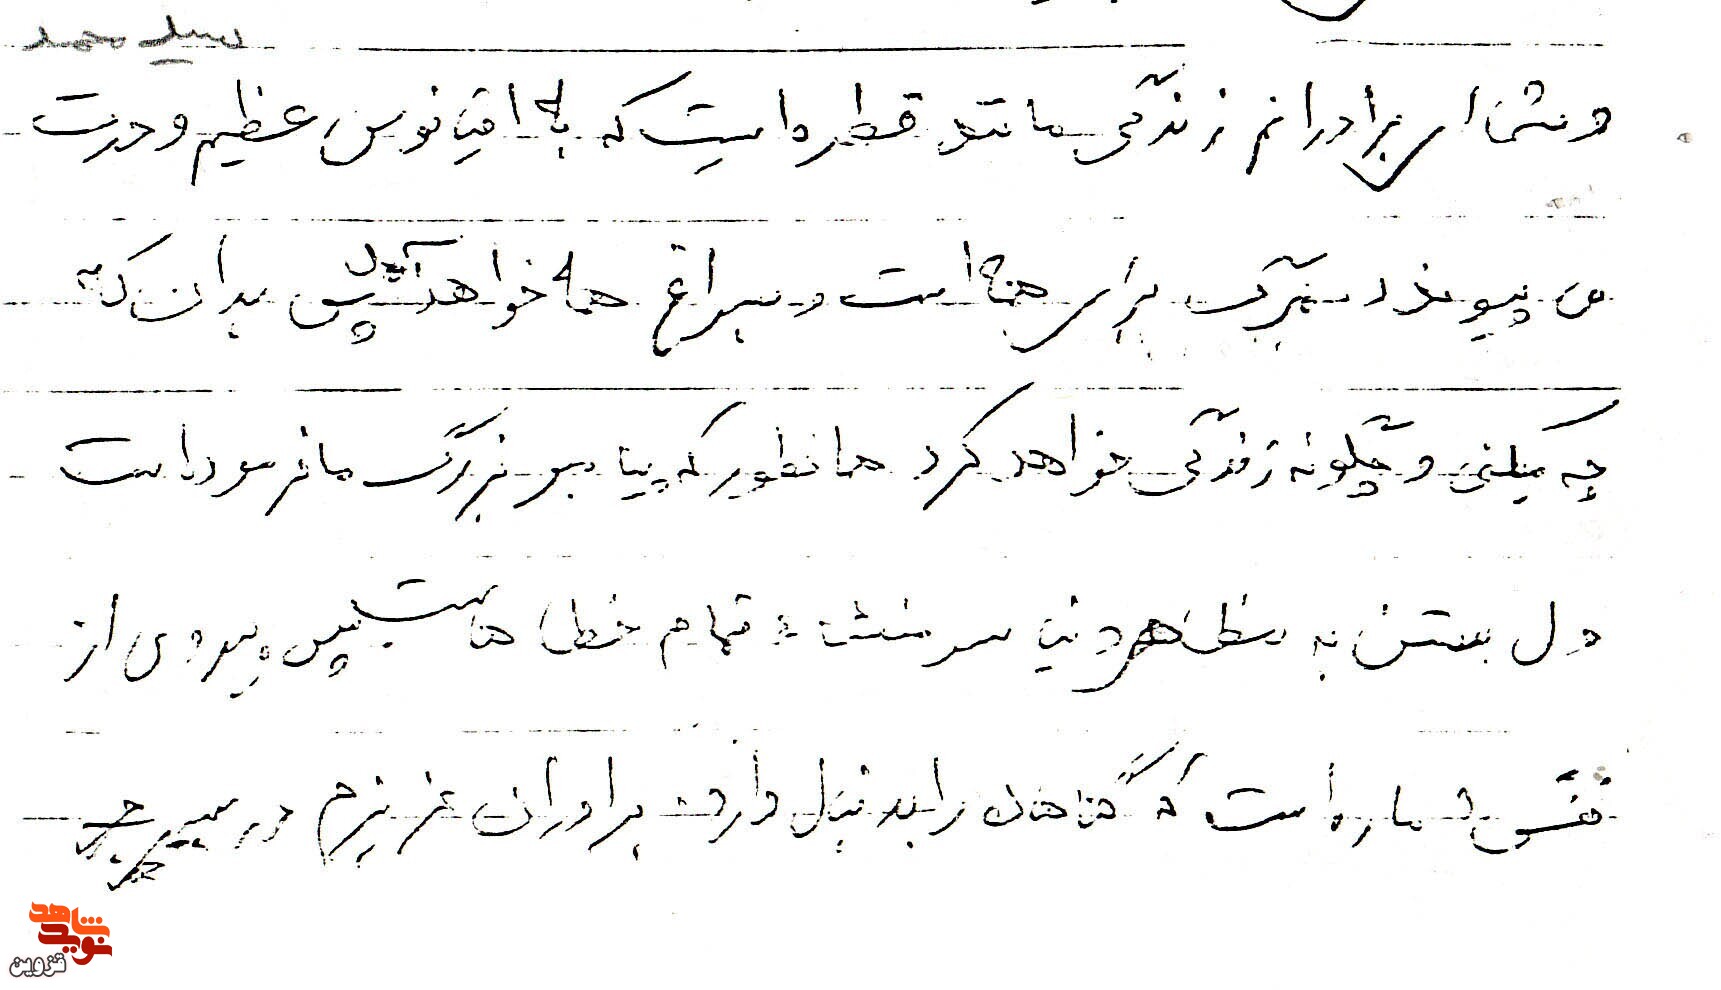 سید محمد
و شما ای برادرانم زندگی مانند قطره ایست که با اقیانوس عظیم وحدت
می پیوندد مرگ برای همه است و سراغ همه خواهد آمد پس بدان که
چه میکنی و چگونه زندگی خواهد کرد همانطور که پیامبر بزرگ ما فرموداست
دل بستن به مظاهر دنیا سرمنشاء تمام خطا هاست پس پیروی از
نفس اماره است که گناهان را بدنبال دارد برادران عزیزم در
شاهد
نوید
قزوین